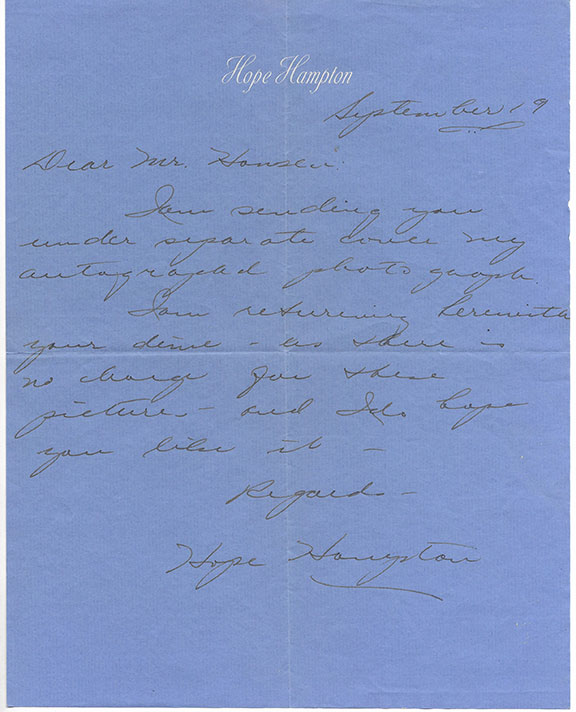 Hope Hampton
September 19
Dear Mr. Hansen:
I am sending you
under separate cover my
autographed photograph.
I am returning herewith
your dime - as there is
no charge for these
pictures - and I do hope
you like it -
Regards -
Hope Hampton